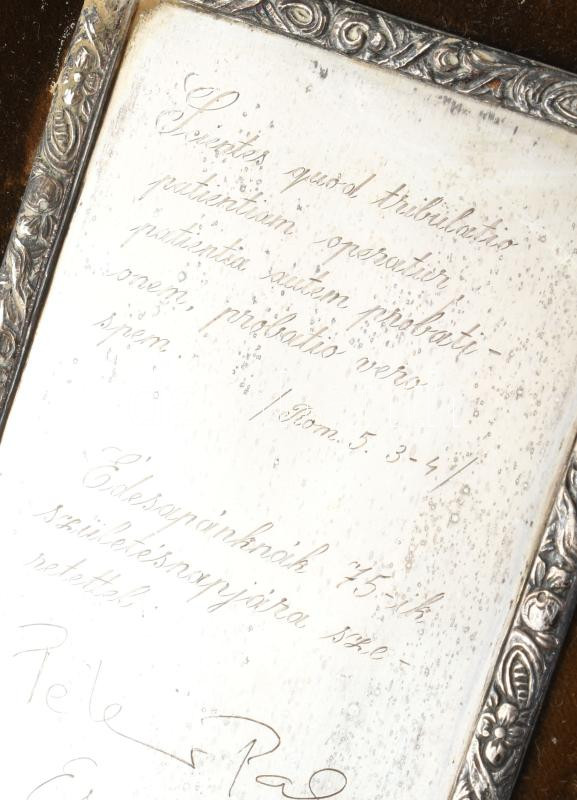 Scientes quod tribulatio
patientiam operatur,
patientia autem probati-
onem, probatio vero
spem.
/ Rom. 5. 3-4 /
Édesapánknak 75-ik
születésnapjára sze-
retettel.
Péter Pal